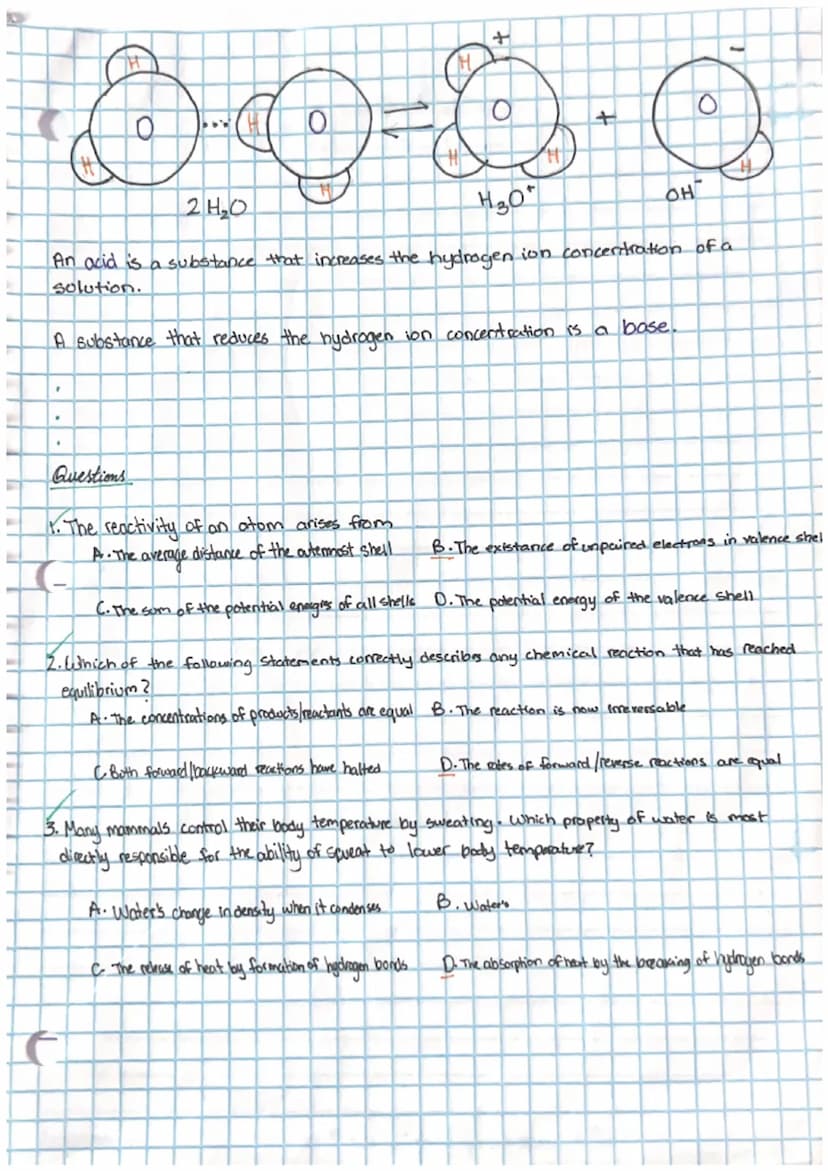 H H O H O H + H O H H + - O H
2 H₂O H₃O⁺ OH⁻
An acid is a substance that increases the hydrogen ion concentration of a
solution.
A substance that reduces the hydrogen ion concentration is a base.
Questions
1. The reactivity of an atom arises from
A. The average distance of the outermost shell B. The existance of unpaired electrons in valence shel
C. The sum of the potential energies of all shells D. The potential energy of the valence shell
2. Which of the following statements correctly describes any chemical reaction that has reached
equilibrium?
A. The concentrations of products/reactants are equal B. The reaction is now irreversable
C. Both forward/backward reactions have halted D. The rates of forward/reverse reactions are equal
3. Many mammals control their body temperature by sweating. Which property of water is most
directly responsible for the ability of sweat to lower body temperature?
A. Water's change in density when it condenses B. Water's
C. The release of heat by formation of hydrogen bonds D. The absorption of heat by the breaking of hydrogen bonds